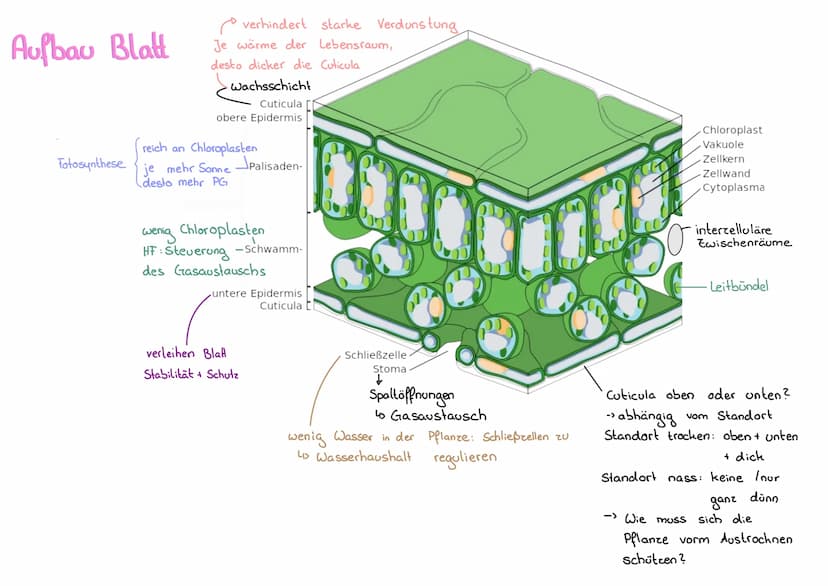 Aufbau Blatt
verhindert starke Verdunstung
Je wärme der Lebensraum,
desto dicker die Cuticula
Wachsschicht
Cuticula
obere Epidermis
Fotosynthese
reich an Chloroplasten
je mehr Sonne
desto mehr PG
Palisaden-
wenig Chloroplasten
HF: Steuerung
des Gasaustauschs
Schwamm-
untere Epidermis
Cuticula
verleihen Blatt
Stabilität + Schutz
Chloroplast
Vakuole
Zellkern
Zellwand
Cytoplasma
interzelluläre
Zwischenräume
Leitbündel
Schließzelle
Stoma
Spaltöffnungen
↳ Gasaustausch
wenig Wasser in der Pflanze: Schließzellen zu
↳ Wasserhaushalt regulieren
Cuticula oben oder unten?
→ abhängig vom Standort
Standort trocken: oben + unten
+ dick
Standort nass: keine / nur
ganz dünn
→ Wie muss sich die
Pflanze vorm Austrochnen
schützen?